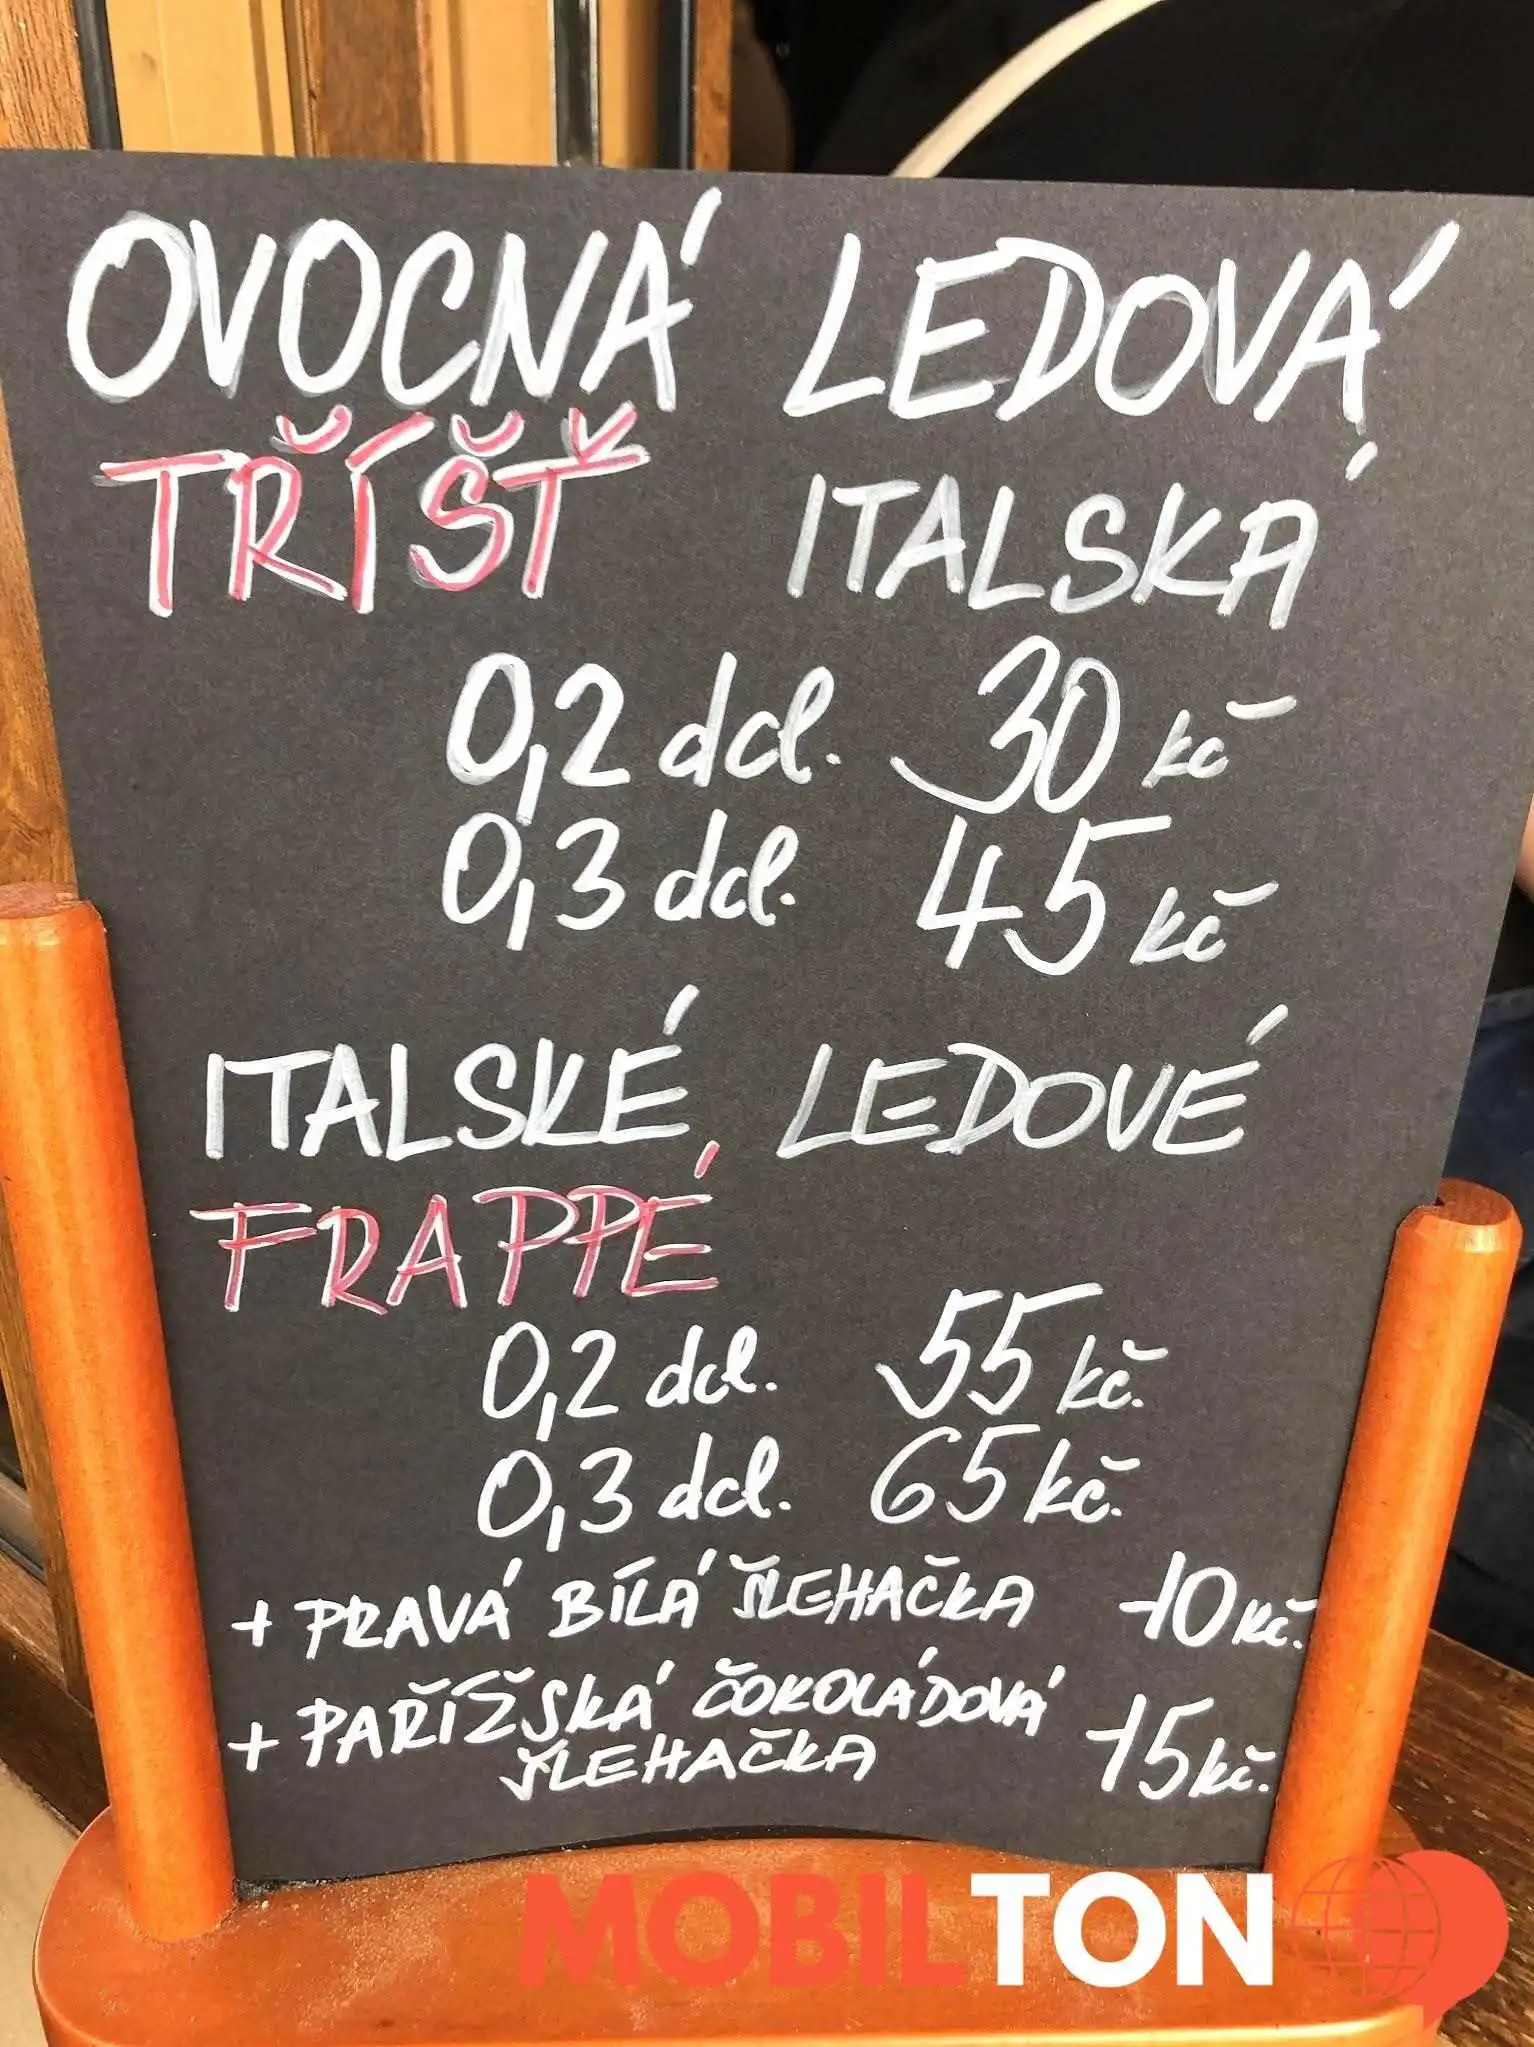 OVOCNÁ LEDOVÁ
TŘÍŠŤ ITALSKÁ
0,2 dcl. 30 kč
0,3 dcl. 45 kč
ITALSKÉ LEDOVÉ
FRAPPÉ
0,2 dcl. 55 kč.
0,3 dcl. 65 kč.
+ PRAVÁ BÍLÁ ŠLEHAČKA 10 kč.
+ PAŘÍŽSKÁ ČOKOLÁDOVÁ
ŠLEHAČKA 15 kč.
MOBILTON